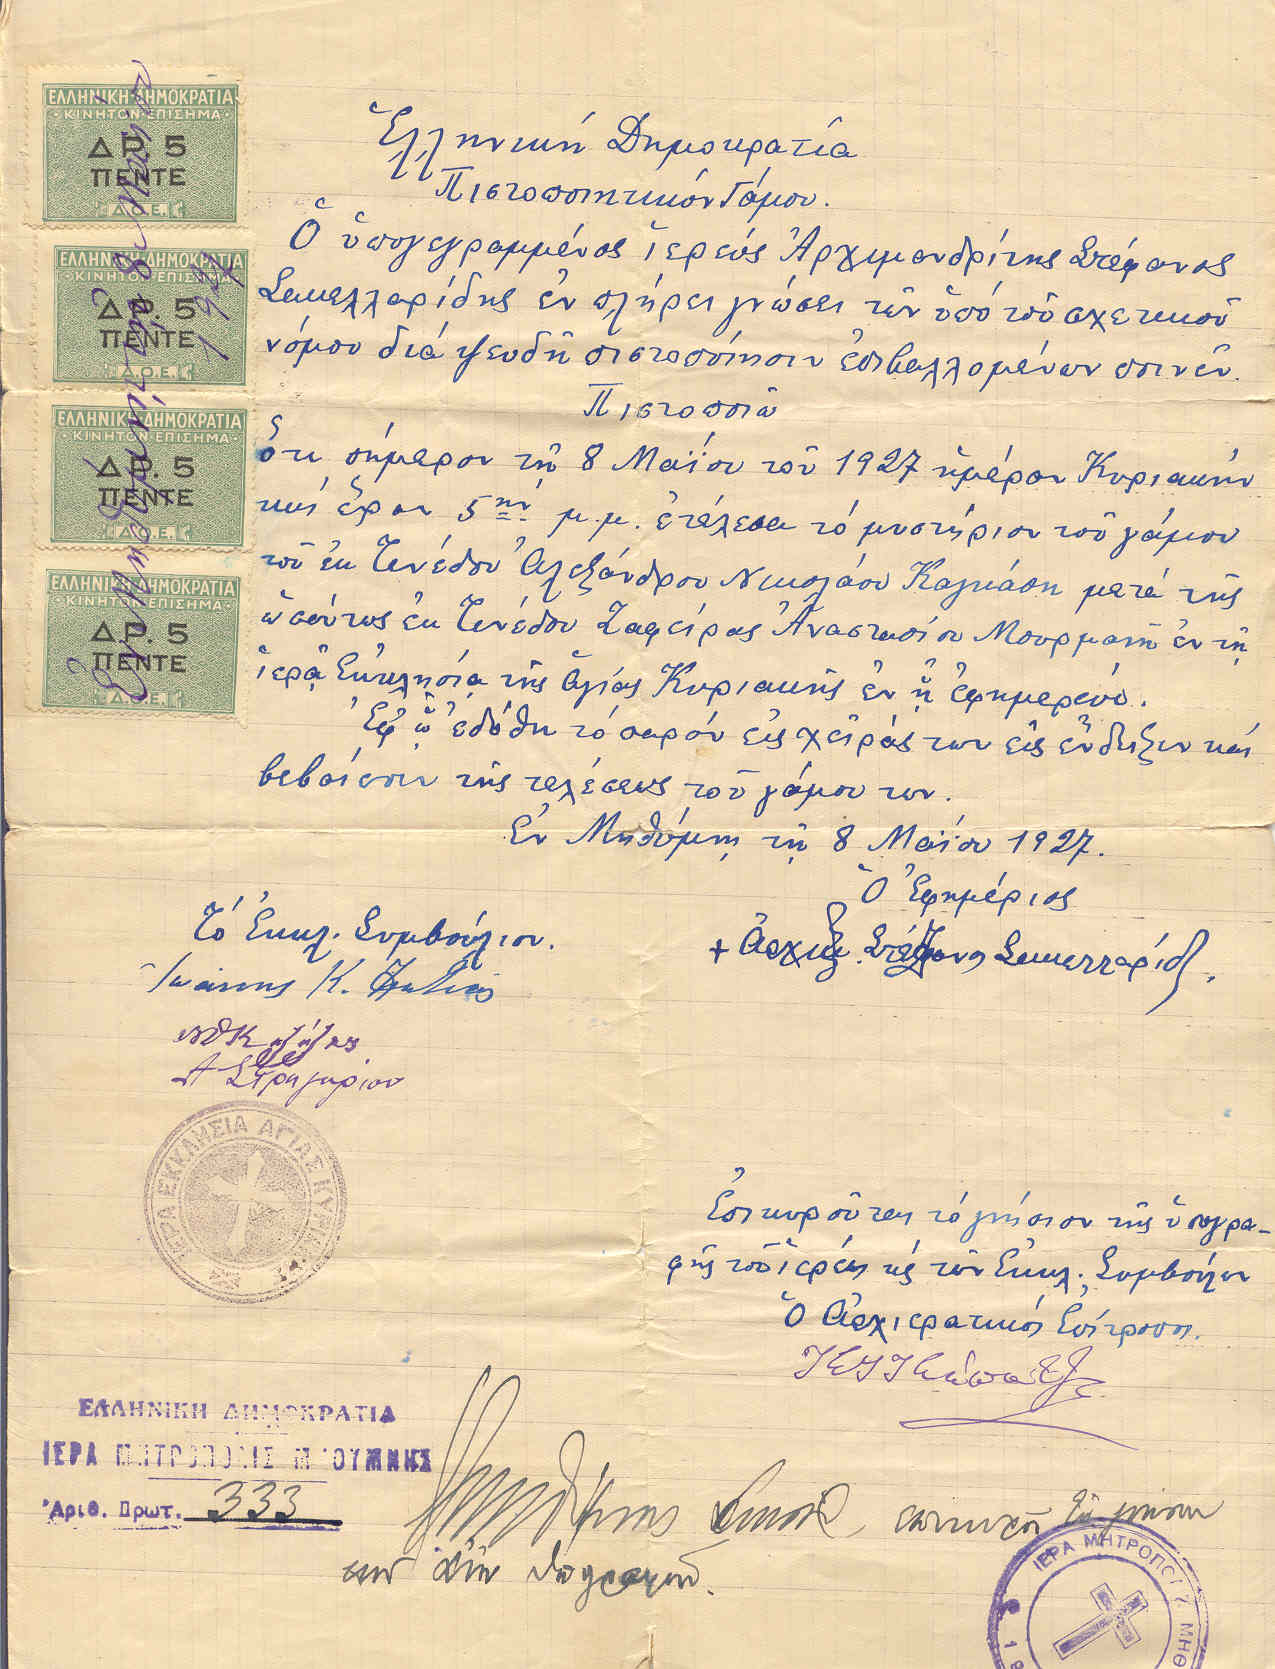 ΕΛΛΗΝΙΚΗ ΔΗΜΟΚΡΑΤΙΑ
ΚΙΝΗΤΟΝ ΕΠΙΣΗΜΑ
ΔΡ. 5
ΠΕΝΤΕ
Δ.Ο.Ε.
ΕΛΛΗΝΙΚΗ ΔΗΜΟΚΡΑΤΙΑ
ΚΙΝΗΤΟΝ ΕΠΙΣΗΜΑ
ΔΡ. 5
ΠΕΝΤΕ
Δ.Ο.Ε.
ΕΛΛΗΝΙΚΗ ΔΗΜΟΚΡΑΤΙΑ
ΚΙΝΗΤΟΝ ΕΠΙΣΗΜΑ
ΔΡ. 5
ΠΕΝΤΕ
Δ.Ο.Ε.
ΕΛΛΗΝΙΚΗ ΔΗΜΟΚΡΑΤΙΑ
ΚΙΝΗΤΟΝ ΕΠΙΣΗΜΑ
ΔΡ. 5
ΠΕΝΤΕ
Δ.Ο.Ε.
Ἐν Μηθύμνῃ τῇ 8 Μαΐου
1927
Ἑλληνική Δημοκρατία
Πιστοποιητικόν Γάμου.
Ὁ ὑπογεγραμμένος ἱερεύς Ἀρχιμανδρίτης Στέφανος
Σακελλαρίδης ἐν πλήρει γνώσει τῶν ὑπό τοῦ σχετικοῦ
νόμου διά ψευδῆ πιστοποίησιν ἐπιβαλλομένων ποινῶν.
Πιστοποιῶ
ὅτι σήμερον τῇ 8 Μαΐου τοῦ 1927 ἡμέραν Κυριακήν
καί ὥραν 5ην μ.μ. ἐτέλεσα τό μυστήριον τοῦ γάμου
τοῦ ἐκ Τενέδου Ἀλεξάνδρου Νικολάου Καγκάση μετά τῆς
ὡσαύτως ἐκ Τενέδου Ζαφείρας Ἀναστασίου Μουρμανῆ ἐν τῇ
ἱερᾷ Ἐκκλησίᾳ τῆς Ἁγίας Κυριακῆς ἐν ᾗ ἐφημερεύω.
Ἐφ' ᾧ ἐδόθη τό παρόν εἰς χεῖράς των εἰς ἔνδειξιν καί
βεβαίωσιν τῆς τελέσεως τοῦ γάμου των.
Ἐν Μηθύμνῃ τῇ 8 Μαΐου 1927.
Ὁ Ἐφημέριος
+ Ἀρχιμ. Στέφανος Σακελλαρίδης
Τό Ἐκκλ. Συμβούλιον.
Ἰωάννης Κ.
ΙΕΡΑ ΕΚΚΛΗΣΙΑ ΑΓΙΑΣ ΚΥΡΙΑΚΗΣ
Ἐπικυροῦται τό γνήσιον τῆς ὑπογρα-
φῆς τοῦ ἱερέως κ̀ς τῶν Ἐκκλ. Συμβούλων
Ὁ Ἀρχιερατικός Ἐπίτροπος.
ΕΛΛΗΝΙΚΗ ΔΗΜΟΚΡΑΤΙΑ
ΙΕΡΑ ΜΗΤΡΟΠΟΛΙΣ ΜΗΘΥΜΝΗΣ
Ἀριθ. Πρωτ. 333
ΙΕΡΑ ΜΗΤΡΟΠΟΛΙΣ ΜΗΘ